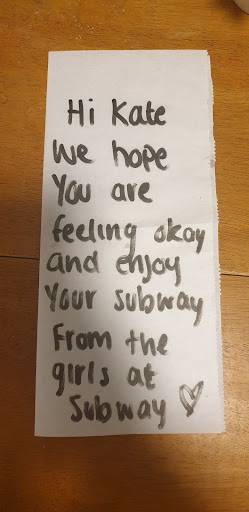 Hi Kate
We hope
You are
feeling okay
and enjoy
Your subway
From the
girls at
Subway ♡